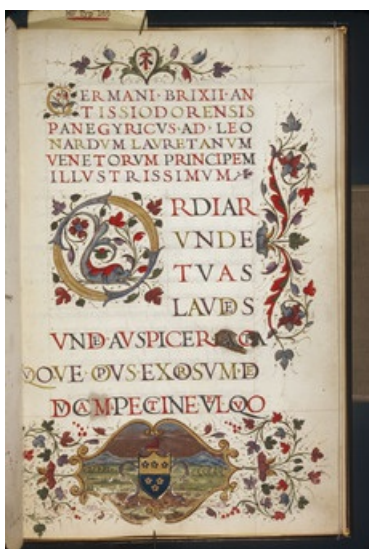 GERMANI·BRIXII·AN
TISSIODORENSIS
PANEGYRICVS·AD·LEO
NARDVM LAVRETANVM
VENETORVM PRINCIPEM
ILLVSTRISSIMVM
ORDIAR
VNDE
TVAS
LAVDES
VNDE·AVSPICER
QVE OPVS·EXORSVM·
PECTINE